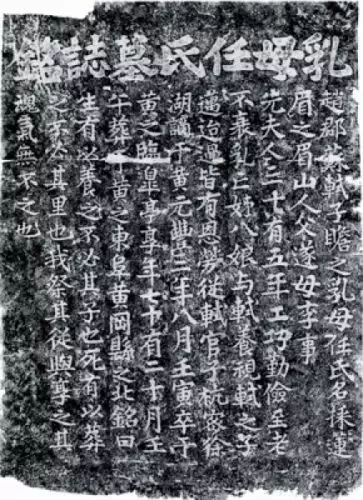 乳母任氏墓誌銘
趙郡蘇軾子瞻之乳母任氏名採蓮
眉之眉山人父遂母李事
先夫人三十有五年工巧勤儉至老
不衰乳亡姊八娘與軾養視軾之子
邁迨過皆有恩勞從軾官于杭密徐
湖謫于黃元豐三年八月壬寅卒于
黃之臨臯亭享年七十有二十月壬
午葬于黃之東阜黃岡縣之北銘曰
生有以養之不必其子也死有以葬
之不必其里也我祭其從與享之其
魂氣無不之也